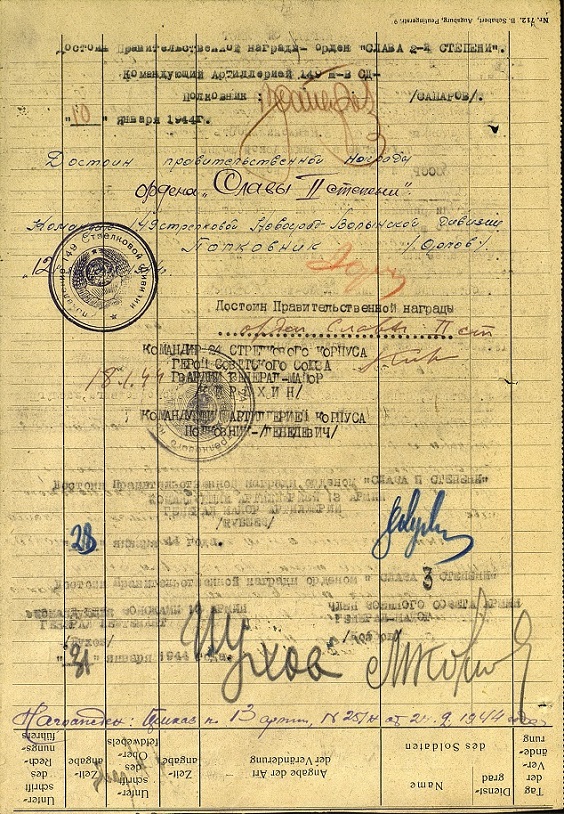 Nr. 712. B. Schubert, Augsburg, Peutingerstr. 9
Достоин Правительственной награды- орден "СЛАВА 2-й СТЕПЕНИ".
Командующий Артиллерией 149
Полковник /САПАРОВ/.
"10" января 1944г.
Достоин правительственной награды
ордена „Славы II степени".
Командир 149 стрелковой Дивизии
Полковник /Орлов/.
"12"
149 Стрелковой дивизии
Достоин Правительственной награды
орден Славы II ст
КОМАНДИР 24 СТРЕЛКОВОГО КОРПУСА
ГЕРОЙ СОВЕТСКОГО СОЮЗА
ГВАРДИИ ГЕНЕРАЛ-МАЙОР
/КИРЮХИН/
18.1.44
КОМАНДУЮЩИЙ АРТИЛЛЕРИЕЙ КОРПУСА
ПОЛКОВНИК-/ЛЕБЕДЕВИЧ/
Достоин Правительственной награды орденом "СЛАВА П СТЕПЕНИ"
КОМАНДУЮЩИЙ АРТИЛЛЕРИЕЙ 13 АРМИИ
ГЕНЕРАЛ МАЙОР АРТИЛЛЕРИИ
"23" января 44 года.
Достоин Правительственной награды орденом " СЛАВА 3 СТЕПЕНИ"
КОМАНДУЮЩИЙ ВОЙСКАМИ 13 АРМИИ
ГЕНЕРАЛ ЛЕЙТЕНАНТ
/Пухов/
ЧЛЕН ВОЕННОГО СОВЕТА АРМИИ
ГЕНЕРАЛ-МАЙОР
"31" января 1944 года.
Пухов
Награжден: Приказ 13 арми, N 25/н от 2 1944 года
Tag der Verände- rung
Dienst- grad
Name
des Soldaten
Angabe der Art
der Veränderung
Zeit- angabe
Unter- schrift des Ober- feldwebels
Zeit- angabe
Unter- schrift des Rech- nungs- führers